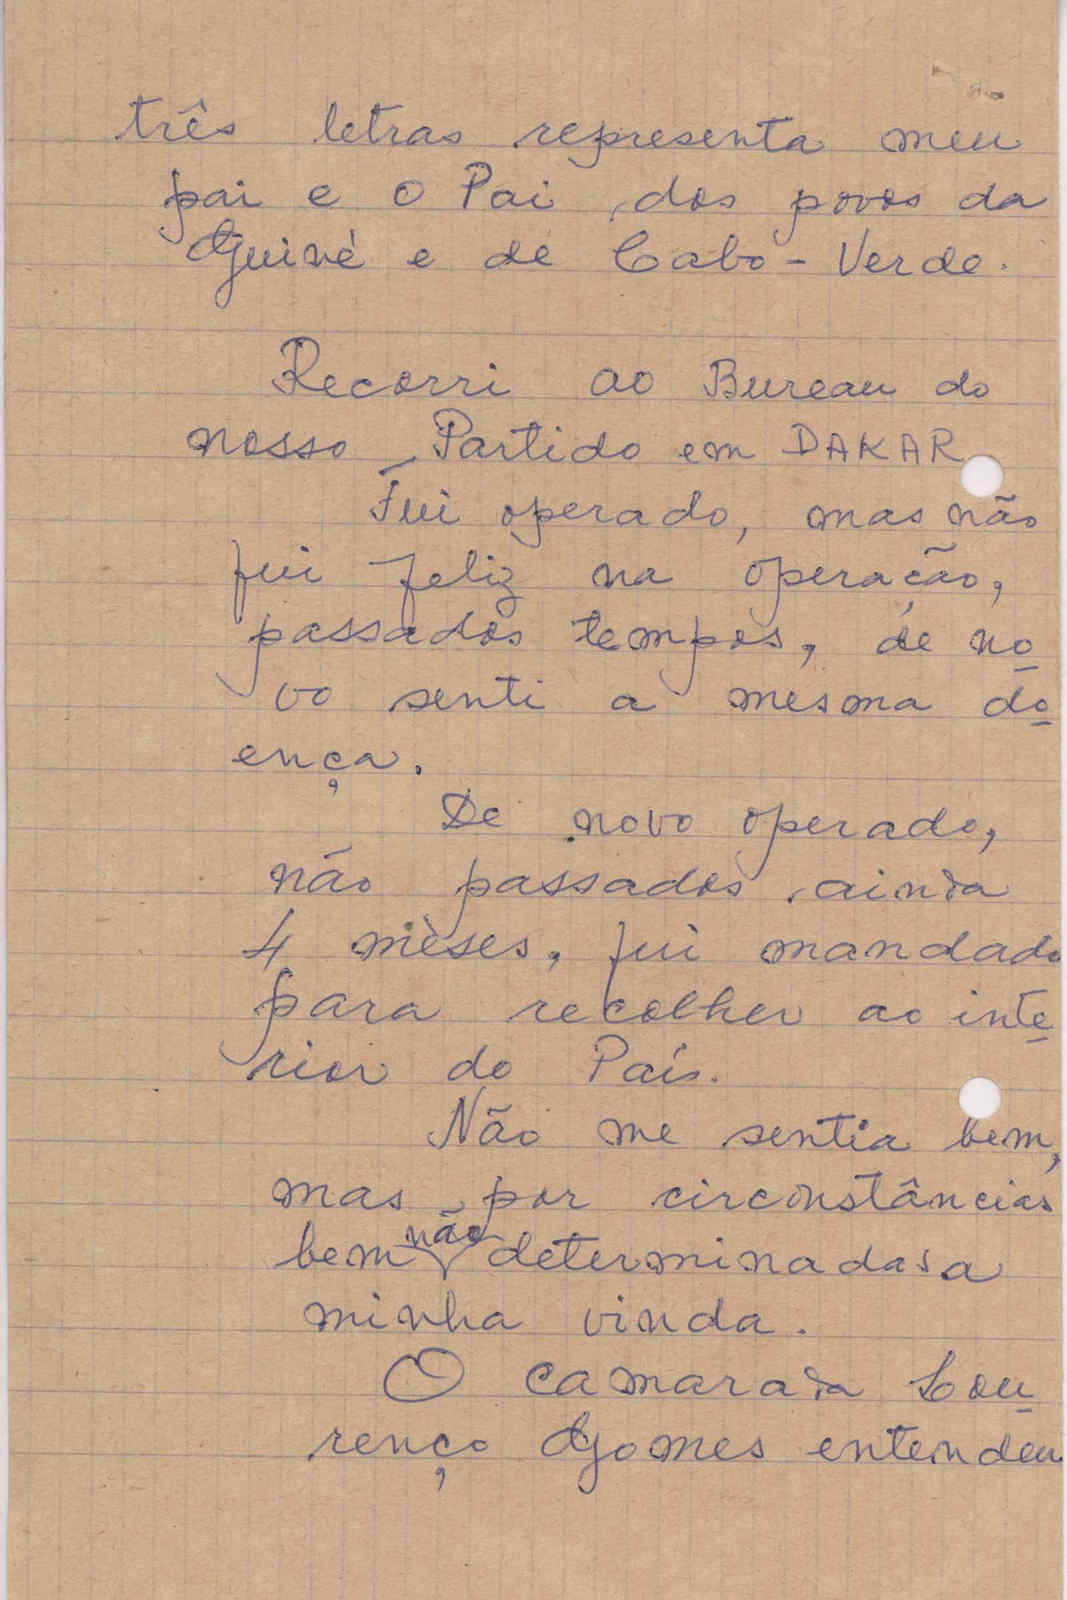 três letras representa meu
pai e o Pai dos povos da
Guiné e de Cabo-Verde.
Recorri ao Bureau do
nosso Partido em DAKAR
Fui operado, mas não
fui feliz na operação,
passados tempos, de no
vo senti a mesma do
ença.
De novo operado,
não passados ainda
4 mêses, fui mandado
para recolher ao inte
rior do País.
Não me sentia bem,
mas por circonstâncias
bem não determinadas a
minha vinda.
O camarada Lou
renço Gomes entendeu